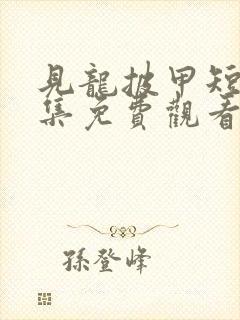 見龍披甲短
集免費觀看
孫登峰